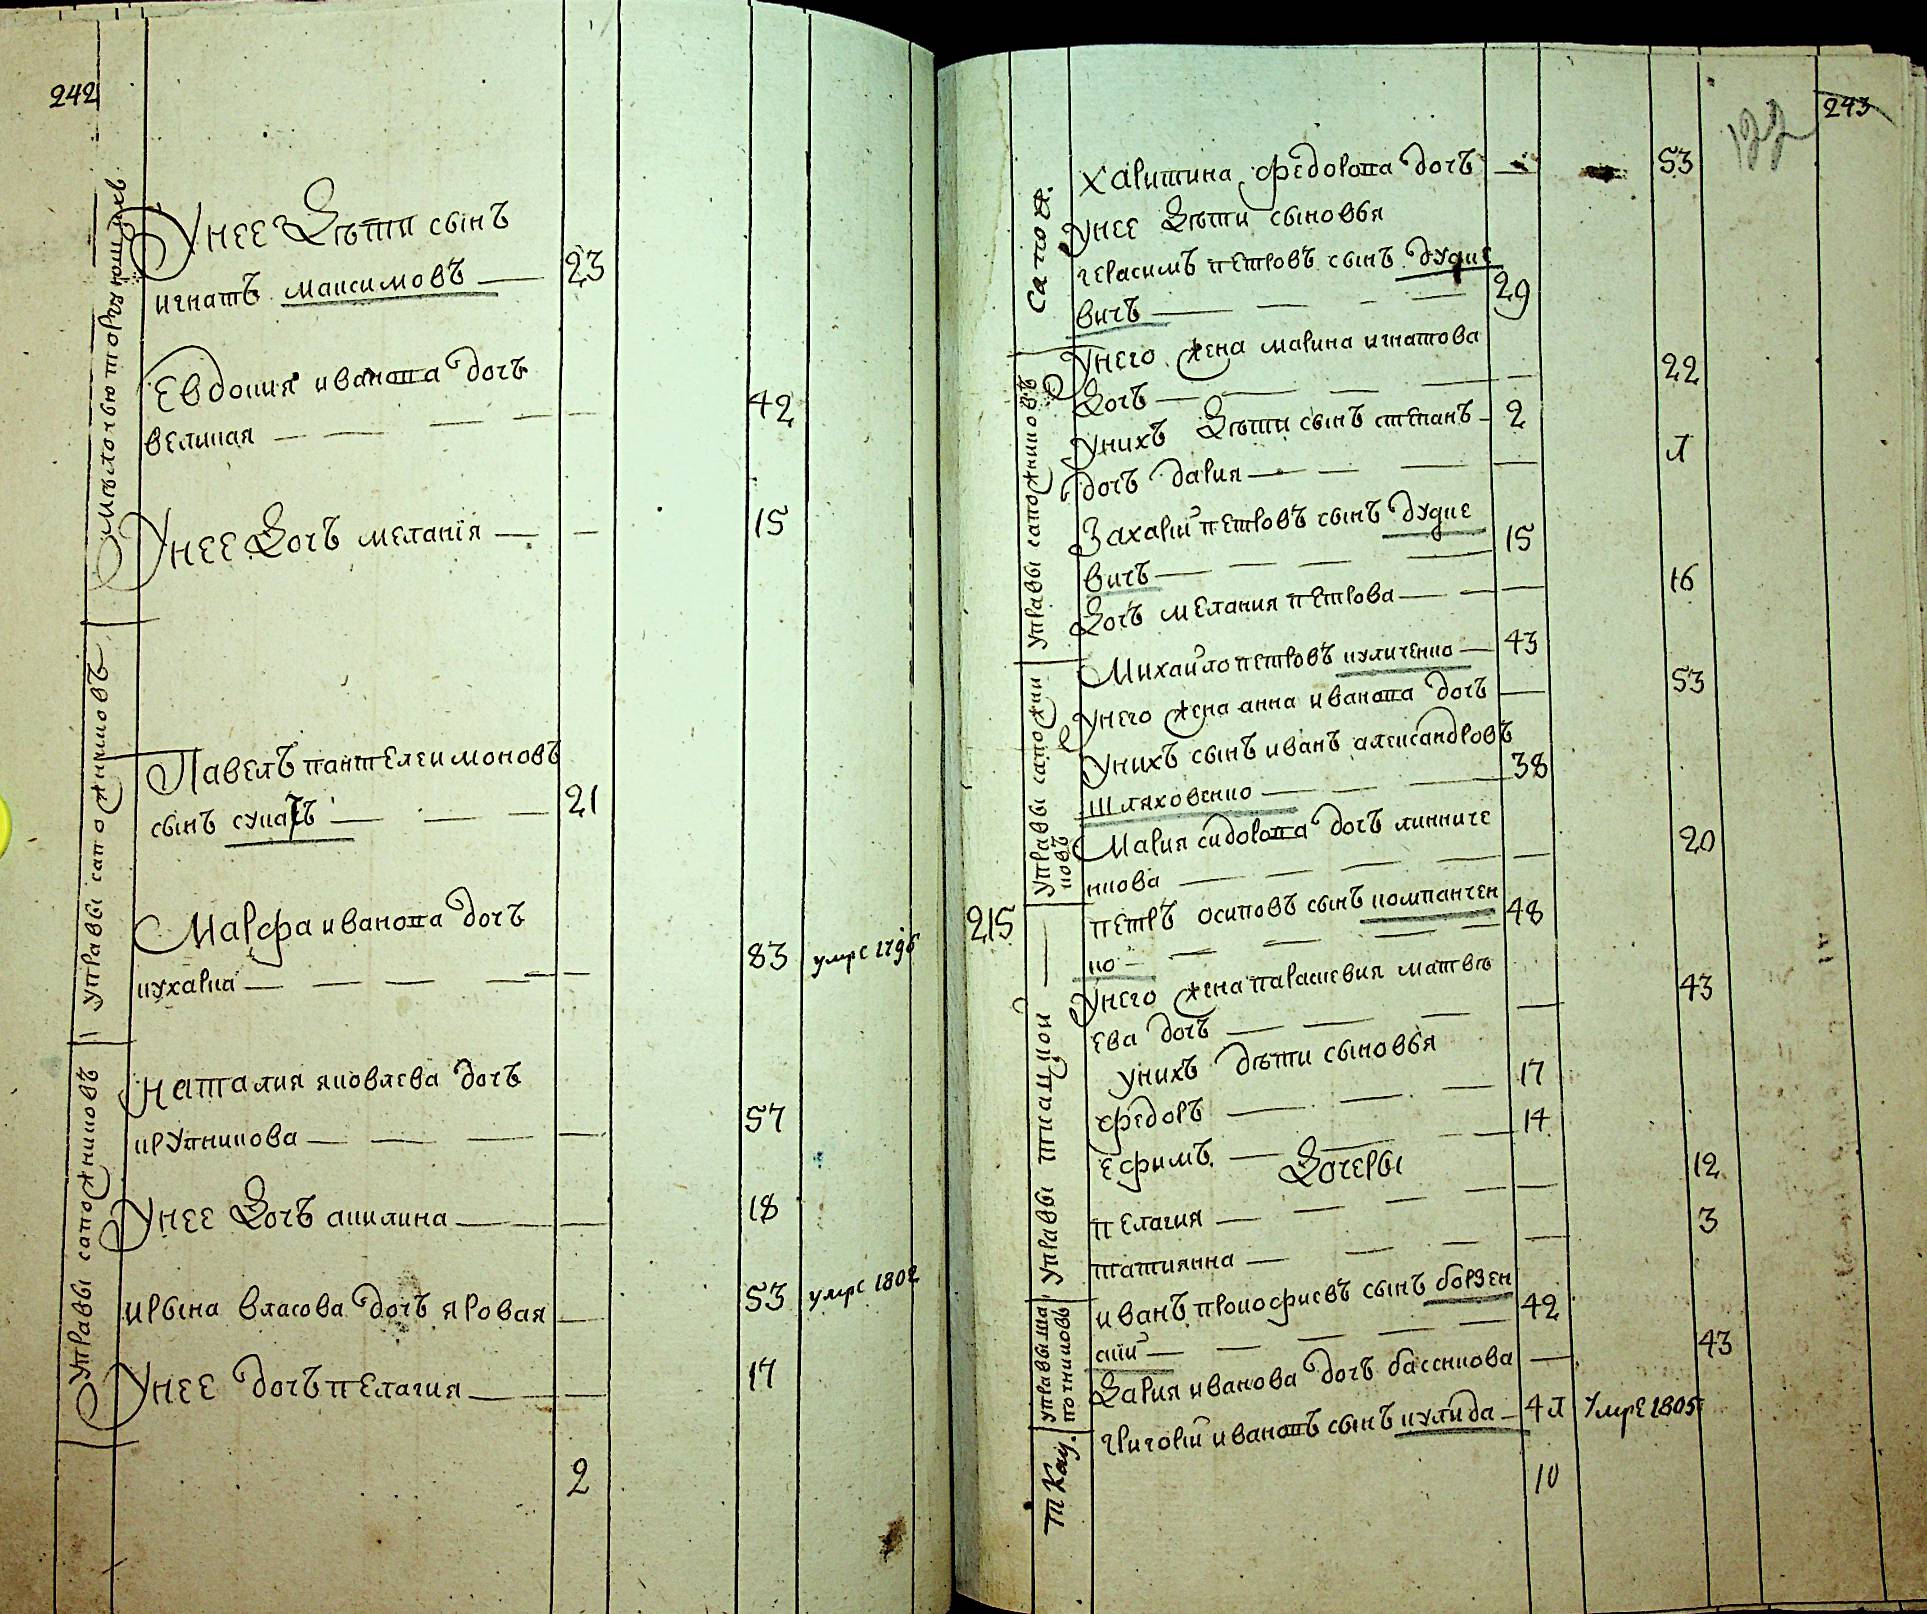 242
мѣлочью торгующихъ
У нее Дѣти сынъ
игнатъ максимовъ — 23
Евдокия иванова дочь
великая — 42
У нее Дочь меланія — 15
управы сапожниковъ
Павелъ пантелеимоновъ
сынъ сукачъ — 21
Марфа иванова дочь
кухарка — 83 умре 1796
управы сапожниковъ
Наталия яковлева дочь
крупникова — 57
У нее Дочь акилина — 18
ирына власова дочь яровая — 53 умре 1802
У нее дочь пелагия — 17
2
243
122
сапож.
Харитина федорова дочь — 53
У нее Дѣти сыновья
герасимъ петровъ сынъ дудке
вичъ — 29
управы сапожниковъ
У него жена марина игнатова
Дочь — 22
У нихъ Дѣти сынъ степанъ — 2
дочь дария — Л
Захарий петровъ сынъ дудке
вичъ — 15
Дочь мелания петрова — 16
управы сапожни
ковъ
Михайло петровъ куличенко — 43
У него жена анна иванова дочь — 53
У нихъ сынъ иванъ александровъ
шляховенко — 38
Мария сидорова дочь линниче
нкова — 20
215
управы ткацкой
петръ осиповъ сынъ компанчен
ко — 48
У него жена параскевия матвѣ
ева дочь — 43
У нихъ дѣти сыновья
федоръ — 17
ефимъ — 14
Дочеры
пелагия — 12
татиянна — 3
управы ша
почниковъ
иванъ прокофиевъ сынъ борзен
кий — 42
Дария иванова дочь — 43
ткац.
Григорий ивановъ сынъ кулида — 4Л Умре 1805
10